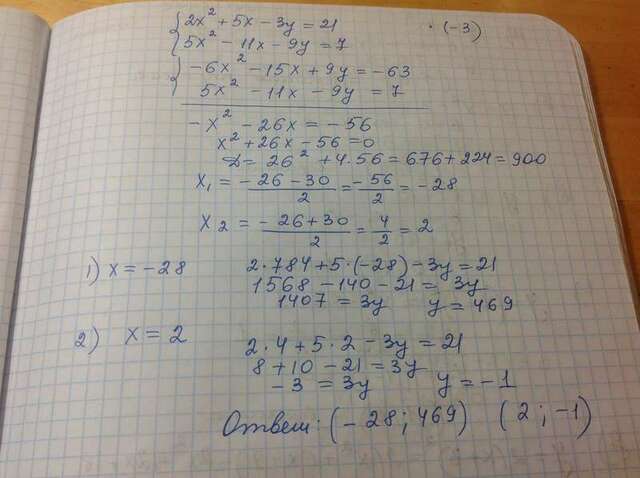 {2x² + 5x − 3y = 21 · (−3)
5x² − 11x − 9y = 7
{−6x² − 15x + 9y = −63
5x² − 11x − 9y = 7
−x² − 26x = −56
x² + 26x − 56 = 0
D = 26² + 4·56 = 676 + 224 = 900
x₁ = (−26 − 30)/2 = −56/2 = −28
x₂ = (−26 + 30)/2 = 4/2 = 2
1) x = −28 2·784 + 5·(−28) − 3y = 21
1568 − 140 − 21 = 3y
1407 = 3y y = 469
2) x = 2 2·4 + 5·2 − 3y = 21
8 + 10 − 21 = 3y
−3 = 3y y = −1
Ответ: (−28; 469) (2; −1)